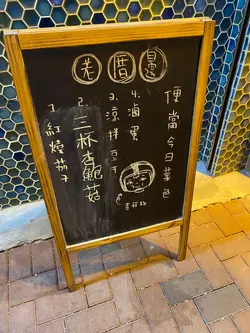 老厝邊
便當今日菜色
1.紅燒茄子
2.三杯杏鮑菇
3.涼拌豆干
4.滷蛋